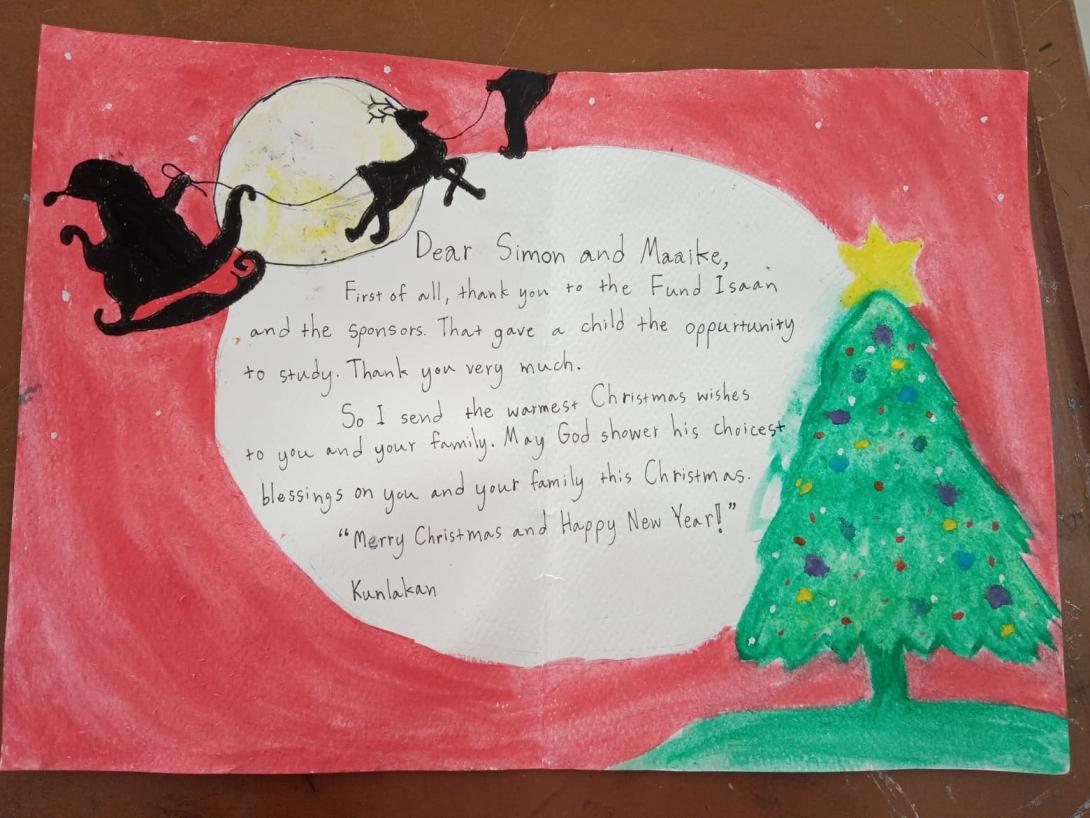 Dear Simon and Maaike,
First of all, thank you to the Fund Isaan
and the sponsors. That gave a child the oppurtunity
to study. Thank you very much.
So I send the warmest Christmas wishes
to you and your family. May God shower his choicest
blessings on you and your family this Christmas.
“Merry Christmas and Happy New Year!”
Kunlakan